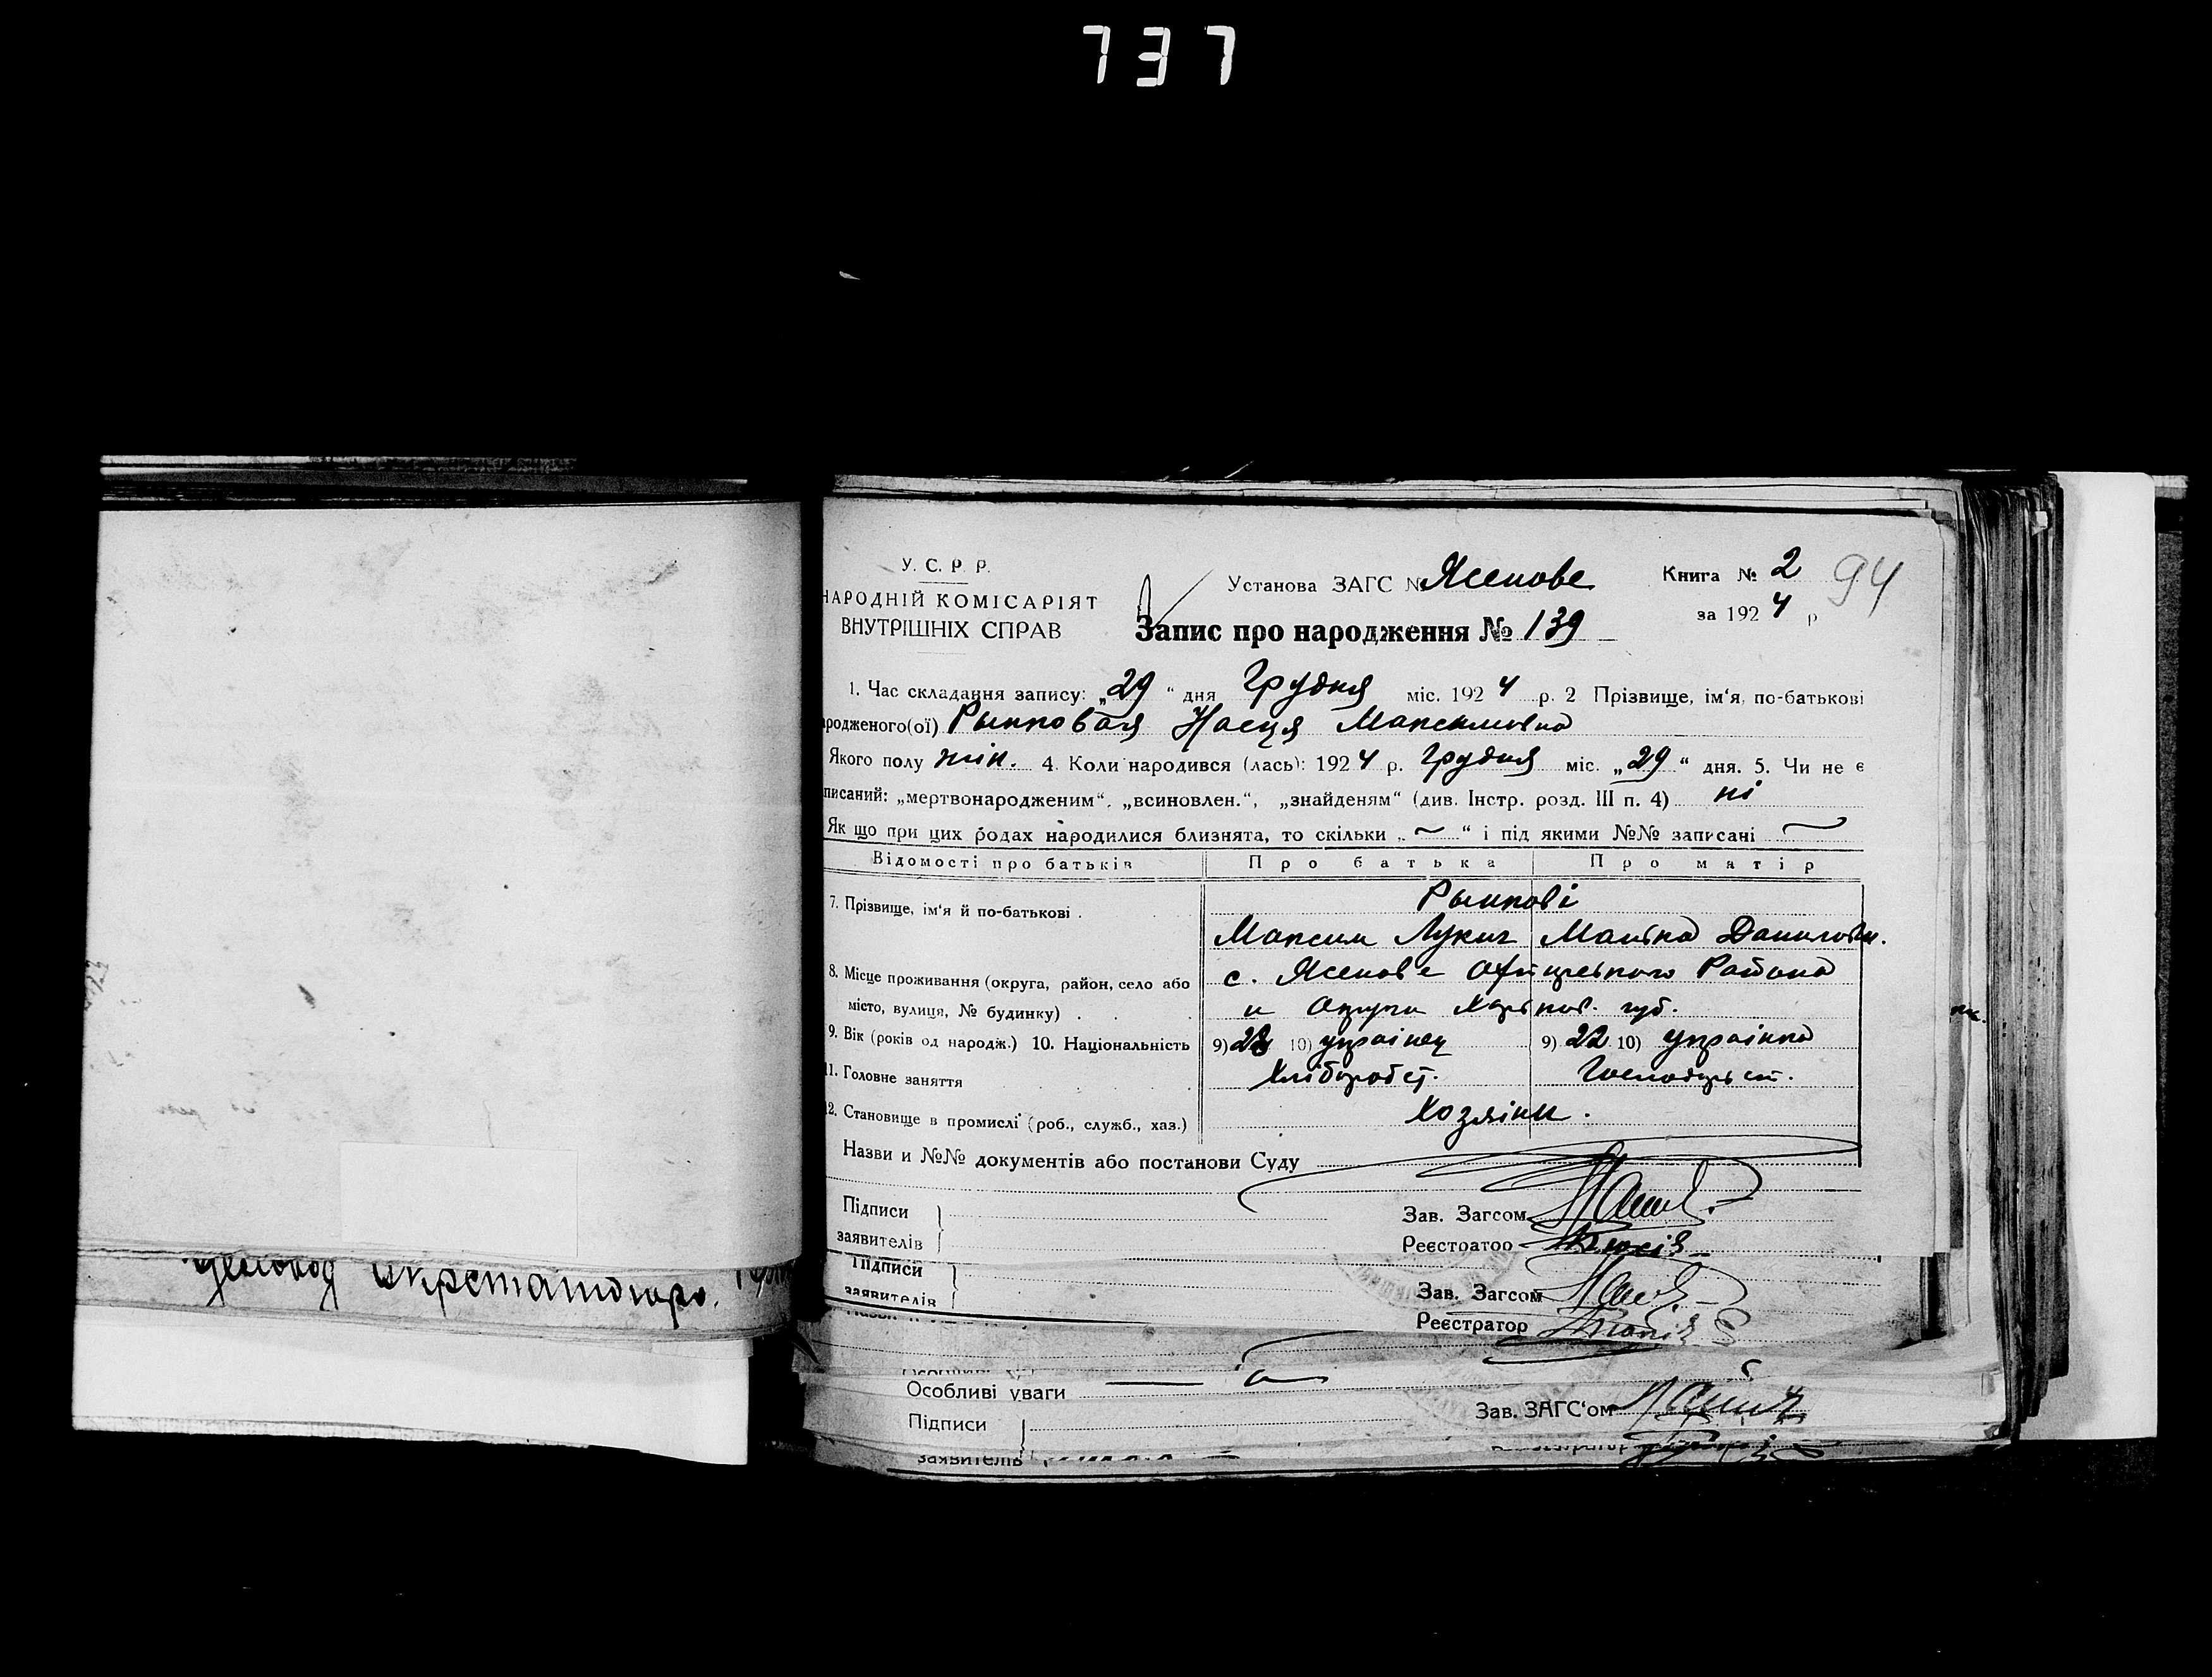 737
У. С. Р. Р.
НАРОДНІЙ КОМІСАРІЯТ
ВНУТРІШНІХ СПРАВ
Установа ЗАГС № Ясенове
Книга № 2
94
за 1924 р
Запис про народження № 139
1. Час складання запису: „29“ дня Грудня міс. 1924 р. 2 Прізвище, ім‘я, по-батькові
родженого(ої) Рынковая Насця Максимовна
Якого полу жін. 4. Коли народився (лась): 1924 р. Грудня міс. „29“ дня. 5. Чи не є
писаний: „мертвонародженим“, „всиновлен.“, „знайденям“ (див. Інстр. розд. III п. 4) ні
Як що при цих родах народилися близнята, то скільки „~“ і під якими №№ записані ~
Відомості про батьків Про батька Про матір
7. Прізвище, ім‘я й по-батькові . Рынкові
Максим Лукич Даниловн.
8. Місце проживання (округа, район, село або с. Ясенове Района
місто, вулиця, № будинку) . и Округи Харьков. губ.
9. Вік (років од народж.) 10. Національність 9) 10) українец 9) 22 10) українка
11. Головне заняття Хлібороб ст. Господарь ст.
12. Становище в промислі (роб., служб., хаз.) Хозяіни.
Назви и №№ документів або постанови Суду
Підписи
заявителів
Зав. Загсом
Реєстратор
Підписи
заявителів
Зав. Загсом
Реєстратор
Особливі уваги
Підписи
Зав. ЗАГС‘ом
заявителів